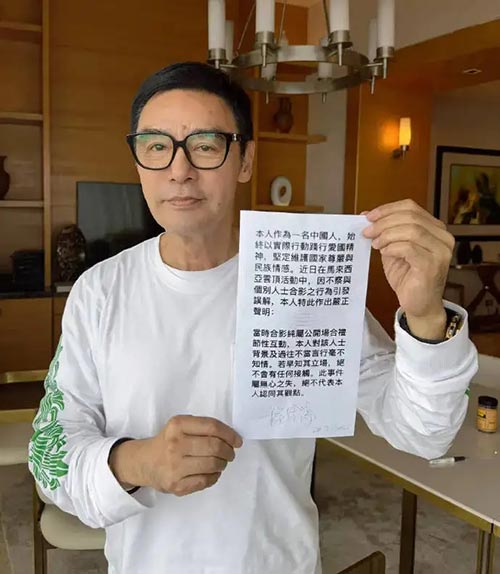 本人作為一名中國人，始
終以實際行動踐行愛國精
神，堅定維護國家尊嚴與
民族情感。近日在馬來西
亞雲頂活動中，因不察與
個別人士合影之行為引發
誤解，本人特此作出嚴正
聲明：
當時合影純屬公開場合禮
節性互動，本人對該人士
背景及過往不當言行毫不
知情。若早知其立場，絕
不會有任何接觸。此事件
屬無心之失，絕不代表本
人認同其觀點。